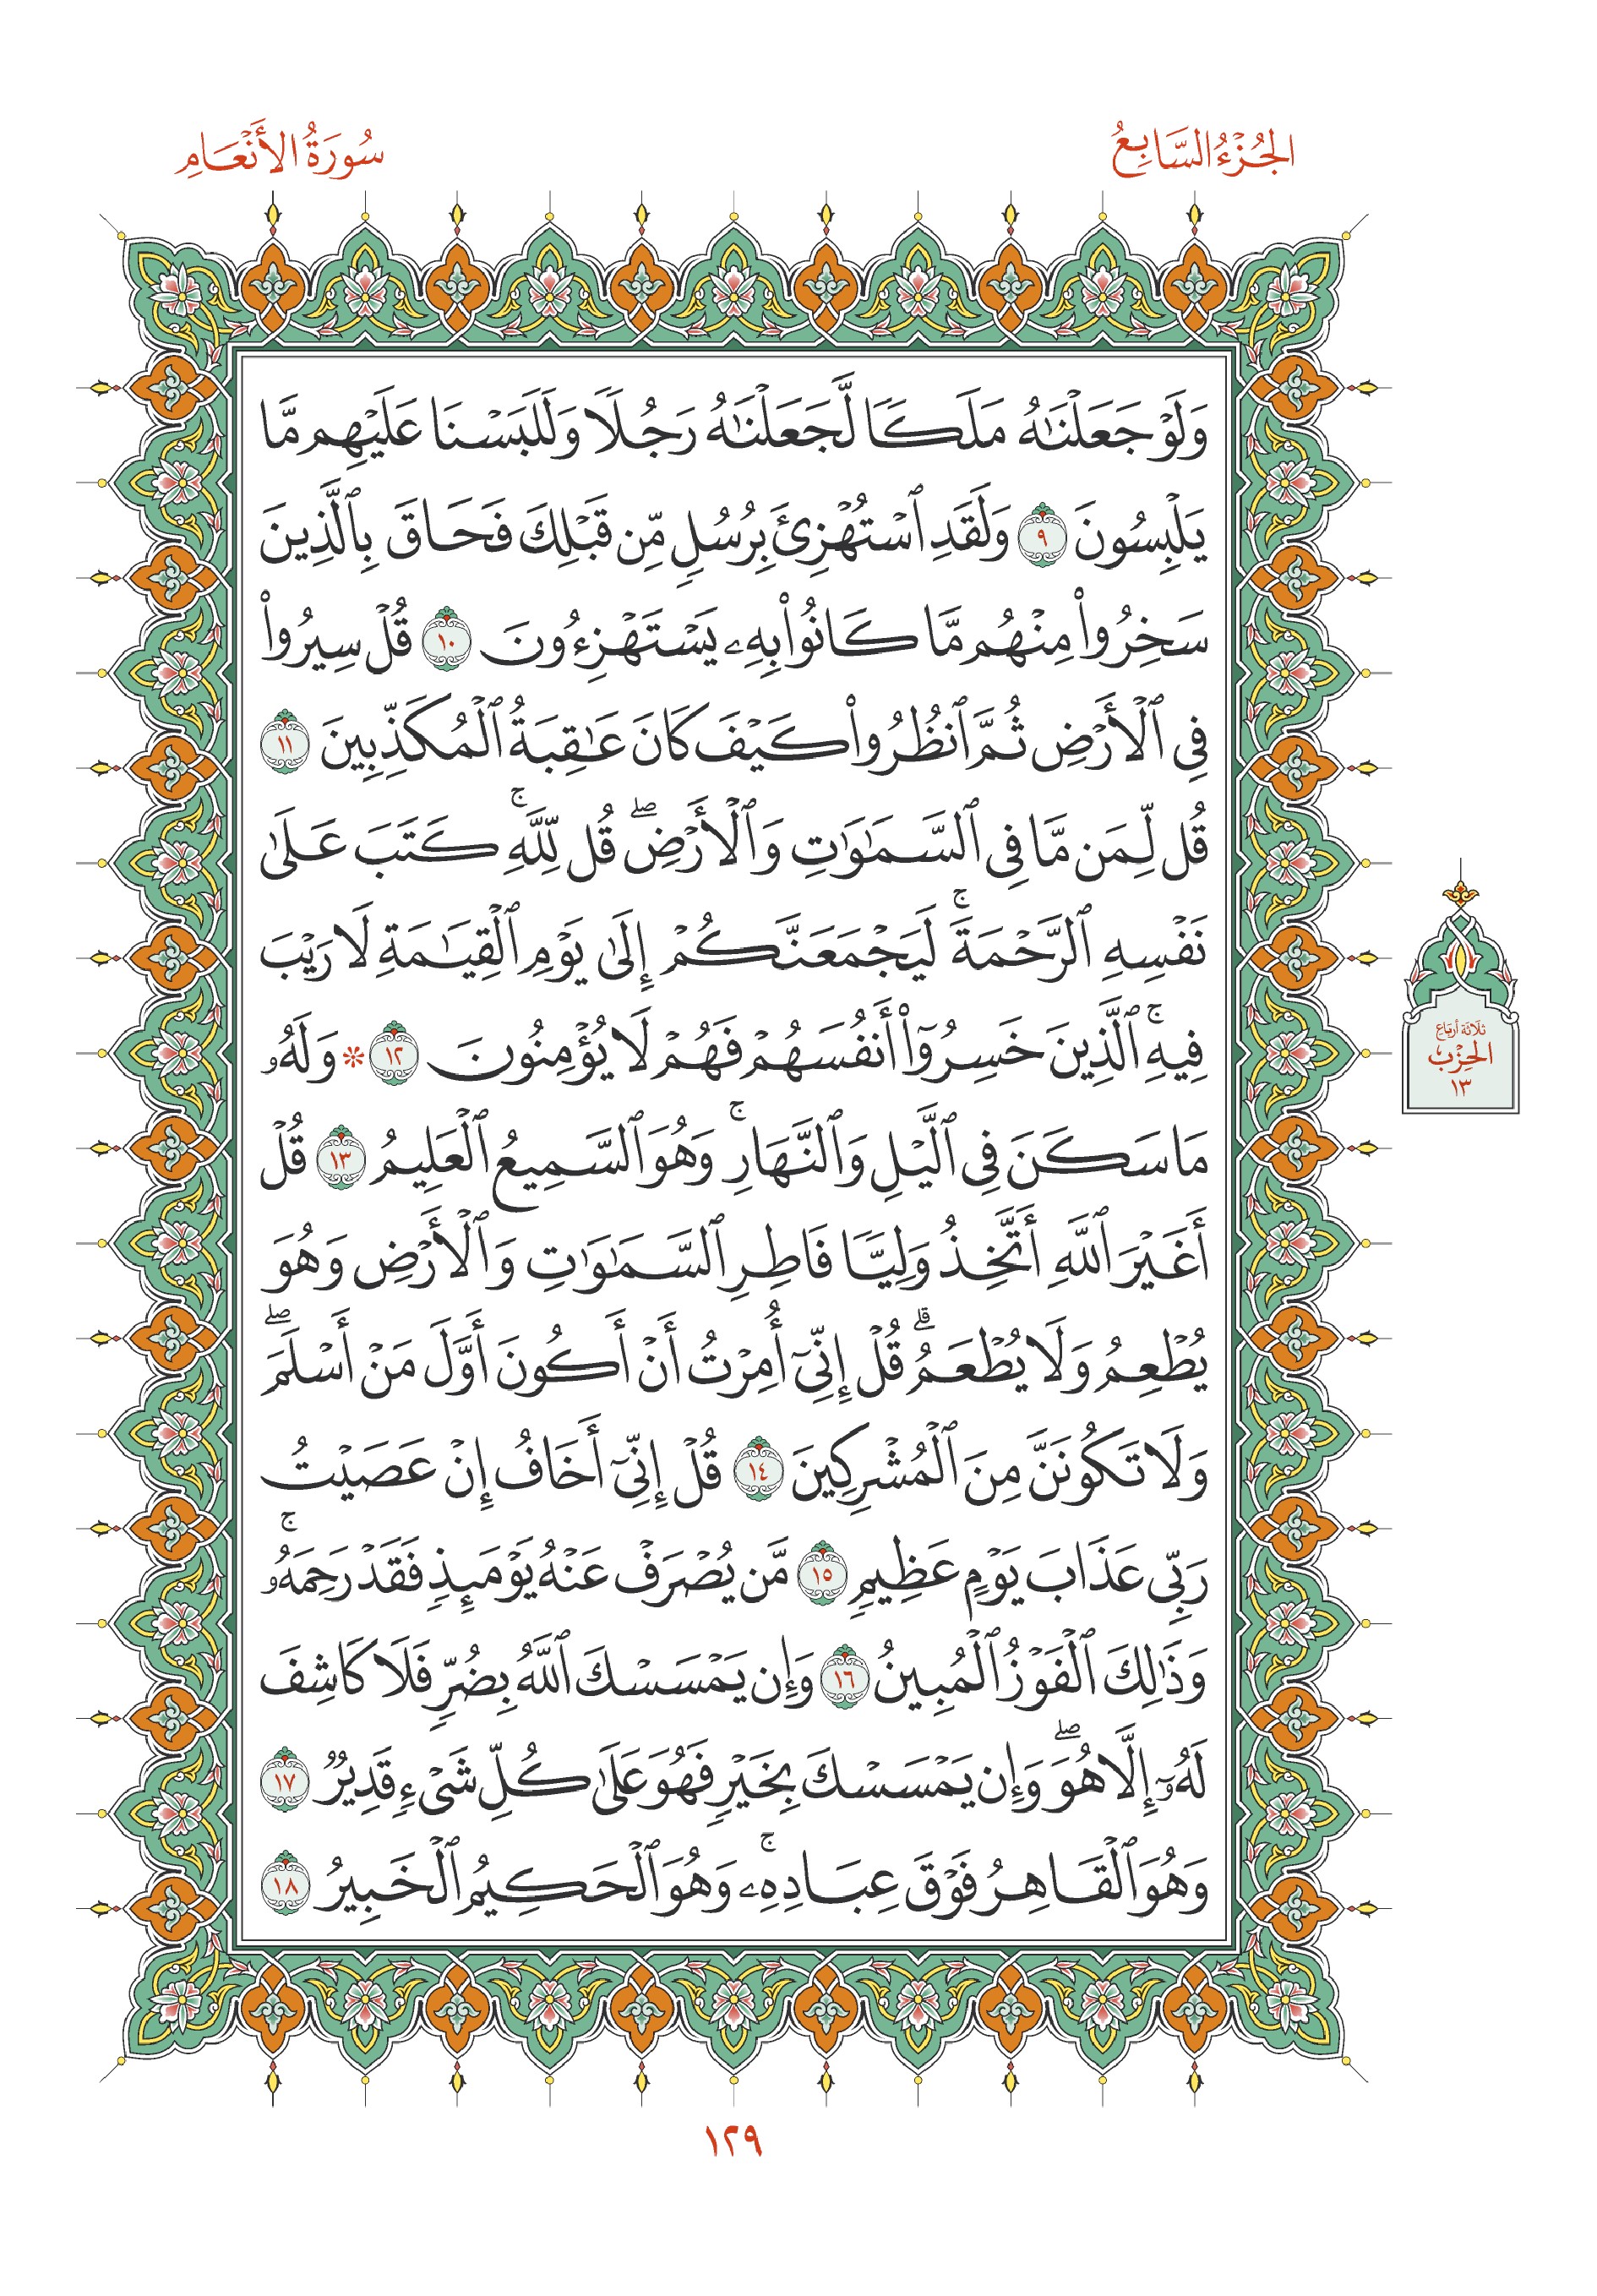 الجُزْءُ السَّابِعُ
سُورَةُ الأَنْعَامِ
وَلَوْ جَعَلْنَٰهُ مَلَكًا لَّجَعَلْنَٰهُ رَجُلًا وَلَلَبَسْنَا عَلَيْهِم مَّا
يَلْبِسُونَ ٩ وَلَقَدِ ٱسْتُهْزِئَ بِرُسُلٍ مِّن قَبْلِكَ فَحَاقَ بِٱلَّذِينَ
سَخِرُوا۟ مِنْهُم مَّا كَانُوا۟ بِهِۦ يَسْتَهْزِءُونَ ١٠ قُلْ سِيرُوا۟
فِى ٱلْأَرْضِ ثُمَّ ٱنظُرُوا۟ كَيْفَ كَانَ عَٰقِبَةُ ٱلْمُكَذِّبِينَ ١١
قُل لِّمَن مَّا فِى ٱلسَّمَٰوَٰتِ وَٱلْأَرْضِۖ قُل لِّلَّهِۚ كَتَبَ عَلَىٰ
نَفْسِهِ ٱلرَّحْمَةَۚ لَيَجْمَعَنَّكُمْ إِلَىٰ يَوْمِ ٱلْقِيَٰمَةِ لَا رَيْبَ
فِيهِۚ ٱلَّذِينَ خَسِرُوٓا۟ أَنفُسَهُمْ فَهُمْ لَا يُؤْمِنُونَ ١٢ * وَلَهُۥ
مَا سَكَنَ فِى ٱلَّيْلِ وَٱلنَّهَارِۚ وَهُوَ ٱلسَّمِيعُ ٱلْعَلِيمُ ١٣ قُلْ
أَغَيْرَ ٱللَّهِ أَتَّخِذُ وَلِيًّا فَاطِرِ ٱلسَّمَٰوَٰتِ وَٱلْأَرْضِ وَهُوَ
يُطْعِمُ وَلَا يُطْعَمُۗ قُلْ إِنِّىٓ أُمِرْتُ أَنْ أَكُونَ أَوَّلَ مَنْ أَسْلَمَۖ
وَلَا تَكُونَنَّ مِنَ ٱلْمُشْرِكِينَ ١٤ قُلْ إِنِّىٓ أَخَافُ إِنْ عَصَيْتُ
رَبِّى عَذَابَ يَوْمٍ عَظِيمٍ ١٥ مَّن يُصْرَفْ عَنْهُ يَوْمَئِذٍ فَقَدْ رَحِمَهُۥۚ
وَذَٰلِكَ ٱلْفَوْزُ ٱلْمُبِينُ ١٦ وَإِن يَمْسَسْكَ ٱللَّهُ بِضُرٍّ فَلَا كَاشِفَ
لَهُۥٓ إِلَّا هُوَۖ وَإِن يَمْسَسْكَ بِخَيْرٍ فَهُوَ عَلَىٰ كُلِّ شَىْءٍ قَدِيرٌ ١٧
وَهُوَ ٱلْقَاهِرُ فَوْقَ عِبَادِهِۦۚ وَهُوَ ٱلْحَكِيمُ ٱلْخَبِيرُ ١٨
ثَلَاثَة أَربَاع
الحِزْب
١٣
١٢٩